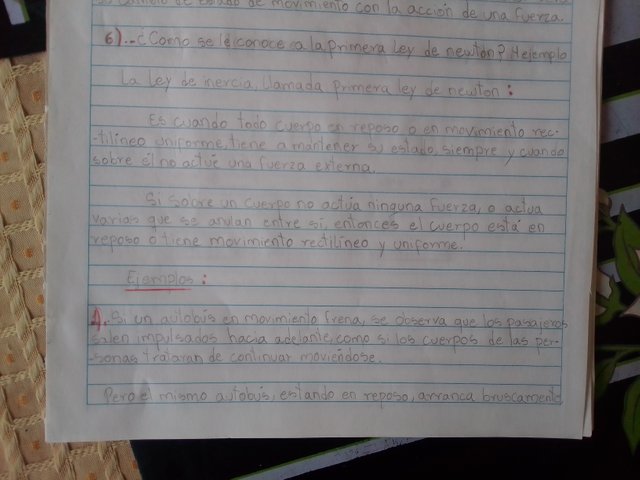 su cambio de estado de movimiento con la acción de una fuerza.
6).-¿Como se le conoce a la primera Ley de newton? 4 ejemplo
La Ley de inercia, llamada primera ley de newton:
Es cuando todo cuerpo en reposo o en movimiento rec-
-tilíneo uniforme, tiene a mantener su estado, siempre y cuando
sobre él no actué una fuerza externa.
Si sobre un cuerpo no actúa ninguna fuerza, o actua
varias que se anulan entre si, entonces el cuerpo está en
reposo o tiene movimiento rectilíneo y uniforme.
Ejemplos:
A. Si un autobús en movimiento frena, se observa que los pasajeros
salen impulsados hacia adelante, como si los cuerpos de las per-
sonas trataran de continuar moviéndose.
Pero el mismo autobús, estando en reposo, arranca bruscamente,